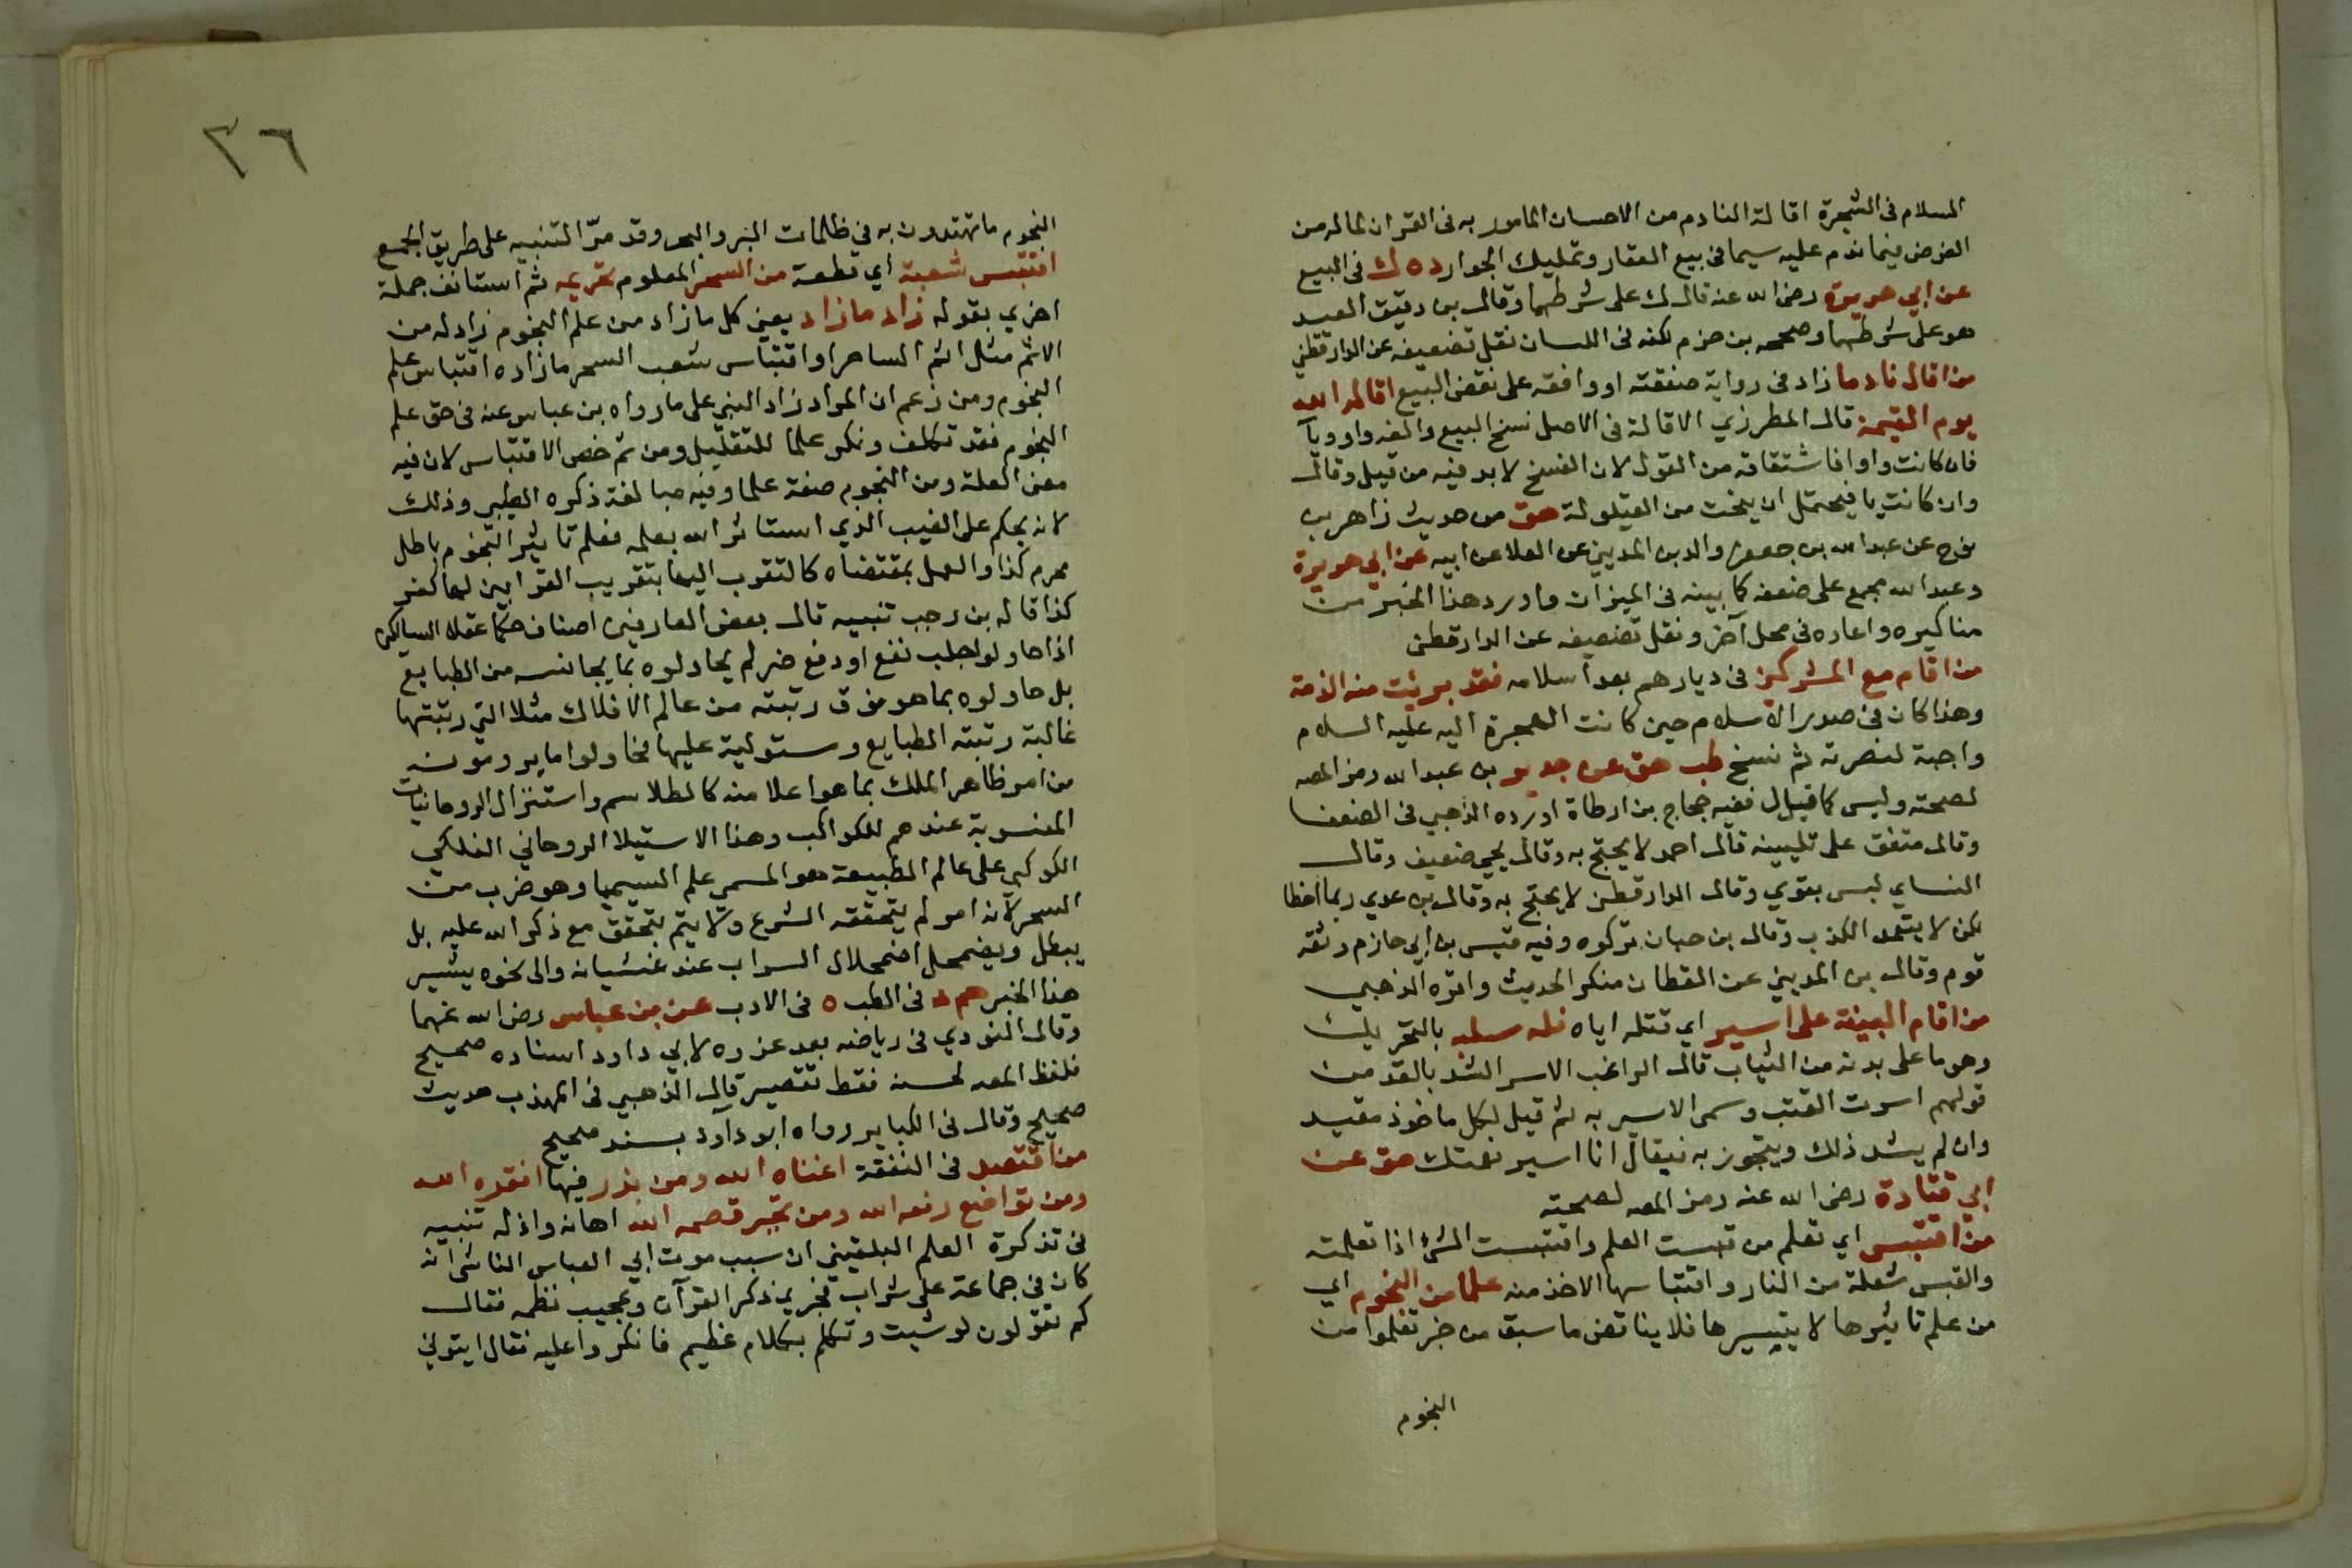 السلام في الشجرة اقالة النادم من الاحسان المامور به في القران لما له من
الغرض فيما ندم عليه سيما في بيع العقار وتمليك الجوار د ه ك في البيع
عن ابي هريرة رضي الله عنه قال ك على شرطهما وقال بن دقيق العيد
هو على شرطهما وصححه بن حزم لكنه في اللسان نقل تضعيفه عن الدارقطني
من اقال نادما زاد في رواية صفقته او وافقه على نقض البيع اقاله الله
يوم القيمة قال المطرزي الاقالة في الاصل نسخ البيع والفه واو ويآ
فان كانت واوا فاشتقاقه من القول لان الفسخ لا بد فيه من قيل وقال
وان كانت يا فيحتمل ان ينحت من القيلولة هق من حديث زاهر بن
نوح عن عبد الله بن جعفر والد بن المديني عن العلا عن ابيه عن ابي هريرة
وعبد الله مجمع على ضعفه كما بينه في الميزان واورد هذا الخبر من
مناكيره واعاده في محل آخر ونقل تضعيفه عن الدارقطني
من اقام مع المشركين في ديارهم بعد اسلامه فقد برئت منه الذمة
وهذا كان في صدر الاسلام حين كانت الهجرة اليه عليه السلام
واجبة لنصرته ثم نسخ طب هق عن جرير بن عبد الله رمز المصـ
لصحته وليس كما قيل ففيه حجاج بن ارطاة اورده الذهبي في الضعفا
وقال متفق على تليينه قال احمد لا يحتج به وقال يحيى ضعيف وقال
النساي ليس بقوي وقال الدارقطني لا يحتج به وقال بن عدي ربما اخطا
لكن لا يتعمد الكذب وقال بن حبان تركوه وفيه قيس بن ابي حازم وثقه
قوم وقال بن المديني عن القطان منكر الحديث واقره الذهبي
من اقام البينة على اسير اي قتله اياه فله سلبه بالتحريك
وهو ما على بدنه من الثياب قال الراغب الاسر الشد بالقد من
قولهم اسرت القتب وسمى الاسير به ثم قيل لكل ماخوذ مقيد
وان لم يشد ذلك ويتجوز به فيقال انا اسير نعمتك هق عن
ابي قتادة رضي الله عنه رمز المصـ لصحته
من اقتبس اي تعلم من قبست العلم واقتبست الشئ اذا تعلمته
والقبس شعلة من النار واقتباسها الاخذ منه علما من النجوم اي
من علم تاثيرها لا يتيسيرها فلا يناقض ما سبق من خبر تعلموا من
النجوم
٣٦
النجوم ما تهتدون به في ظلمات البر والبحر وقد مرّ التنبيه على طريق الجمع
اقتبس شعبة اي قطعة من السحر المعلوم تحريمه ثم استانف جملة
اخري بقوله زاد ما زاد يعني كل ما زاد من علم النجوم زاد له من
الاثم مثل اثم الساحر او اقتباس شعب السحر ما زاده اقتباس علم
النجوم ومن زعم ان المراد زاد النبي على ما رواه بن عباس عنه في حق علم
النجوم فقد تكلف ونكر علما للتقليل ومن ثم خص الاقتباس لان فيه
معنى العلة ومن النجوم صفة علما وفيه مبالغة ذكره الطيبي وذلك
لانه يحكم على الغيب الذي استاثر الله بعلمه فعلم تاثير النجوم باطل
محرم كذا والعمل بمقتضاه كالتقرب اليها بتقريب القرابين لها كفر
كذا قاله بن رجب تنبيه قال بعض العارفين اصناف حكما عقلا السالكين
اذا حاولوا جلب نفع او دفع ضر لم يحاولوه بما يجانسه من الطبايع
بل حاولوه بما هو فوق رتبته من عالم الافلاك مثلا التي رتبتها
غالبة رتبته الطبايع ومستولية عليها فحاولوا ما يرومونه
من امر ظاهر الملك بما هو اعلا منه كالطلاسم واستنزال الروحانيات
المنسوبة عندهم للكواكب وهذا الاستيلا الروحاني الفلكي
الكوكبي على عالم الطبيعة هو المسمى علم السيميا وهو ضرب من
السحر لانه امر لم يتحققه الشرع ولا يتم بتحقق مع ذكر الله عليه بل
يبطل ويضمحل اضمحلال السراب عند غشيانه والى نحوه يشير
هذا الخبر حم د في الطب ه في الادب عن بن عباس رضي الله عنهما
وقال النووي في رياضه بعد عزوه لابي داود اسناده صحيح
فلفظ المصـ لحسنه فقط تقصير قال الذهبي في المهذب حديث
صحيح وقال في الكباير رواه ابو داود بسند صحيح
من اقتصد في النفقة اغناه الله ومن بذر فيها افقره الله
ومن تواضع رفعه الله ومن تجبر قصمه الله اهانه واذله تنبيه
في تذكرة العلم البلقيني ان سبب موت ابي العباس الناشى انه
كان في جماعة على شراب فجري ذكر القرآن وعجيب نظمه فقال
كم تقولون لو شيت وتكلم بكلام عظيم فانكروا عليه فقال ايتوني